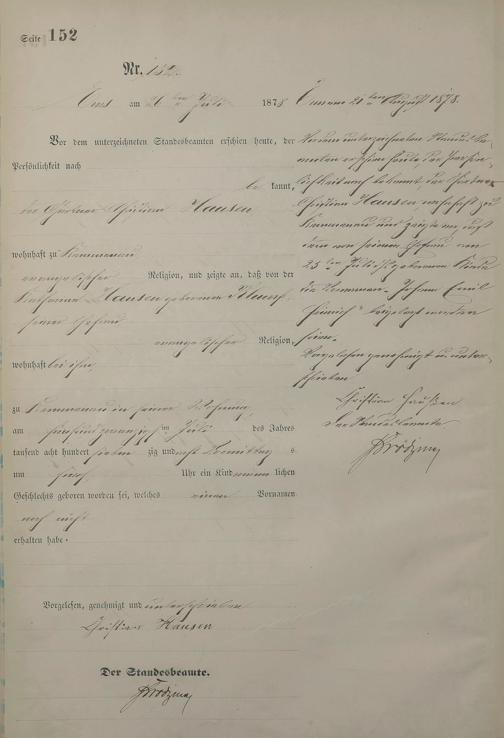 Seite 152
Nr. 152.
Ems am 26 ten Juli 1878
Vor dem unterzeichneten Standesbeamten erschien heute, der
Persönlichkeit nach
be kannt,
der Christian Hausen
wohnhaft zu Kemmenau
evangelischer Religion, und zeigte an, daß von der
Katharina Hausen geborenen
seiner Ehefrau
evangelischer Religion,
wohnhaft bei ihm
zu Kemmenau in seiner Wohnung
am fünfundzwanzigsten Juli des Jahres
tausend acht hundert siebenzig und acht Vormittags
um fünf Uhr ein Kind männlichen
Geschlechts geboren worden sei, welches einen Vornamen
noch nicht
erhalten habe.
Vorgelesen, genehmigt und unterschrieben
Christian Hausen
Der Standesbeamte.
Ems am 21 ten August 1878.
Vor dem unterzeichneten Standesbe-
amten erschien heute der Persön-
lichkeit nach bekannt der
Christian Hausen wohnhaft zu
Kemmenau und zeigte an, daß
dem von seiner Ehefrau am
25 ten Juli geborenen Kinde
die Vornamen Emil
Heinrich beigelegt worden
seien.
Vorgelesen genehmigt u. unter-
schrieben
Christian Haußen
Der Standesbeamte